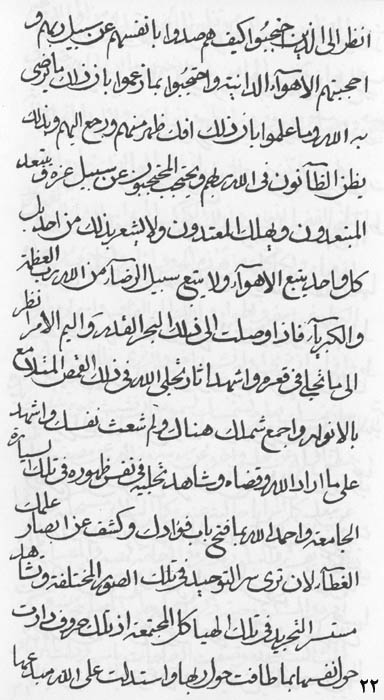 انظر الى الذين احتجبوا كيف هم صدوا بانفسهم عن سبيل ربهم و
احجبتهم الاهوآء الدانية واحتجبوا بما زعموا بان ذلك ما يرضى
به الله وما علموا بان ذلك افك ظهر منهم ورجع اليهم وبذلك
يظن الظآنون فى الله ربهم ويحتجب المحتجبون عن سبيل عزه و يبتعد
المبتعدون ويهلك المعتدون ولا يشعر بذلك من احد بل
كل واحد يتبع الاهوآء ولا يتبع سبيل الرضآء من الله رب العظمة
والكبريآء فاذا وصلت الى ذلك البحر القدر واليم الامر انظر
الى ما تجلى فى قعره واشهد اثار تجلى الله فى ذلك القمص المتلامع
بالانوار واجمع شملك هناك ولم شعث نفسك واشهد
على ما اراد الله وقضاه وشاهد تجليه فى نفس ظهوره فى تلك السيارة
الجامعة واحمد الله بما فتح باب فؤادك وكشف عن ابصار عملك
الغطآء لان ترى سر التوحيد فى تلك الصور المختلفة وتشاهد
مستسر التجريد فى تلك الهياكل المجتمعة اذ تلك حروف دارت
حول نفسها بما طافت حول ربها واستدلت على الله مبدعها
٢٢